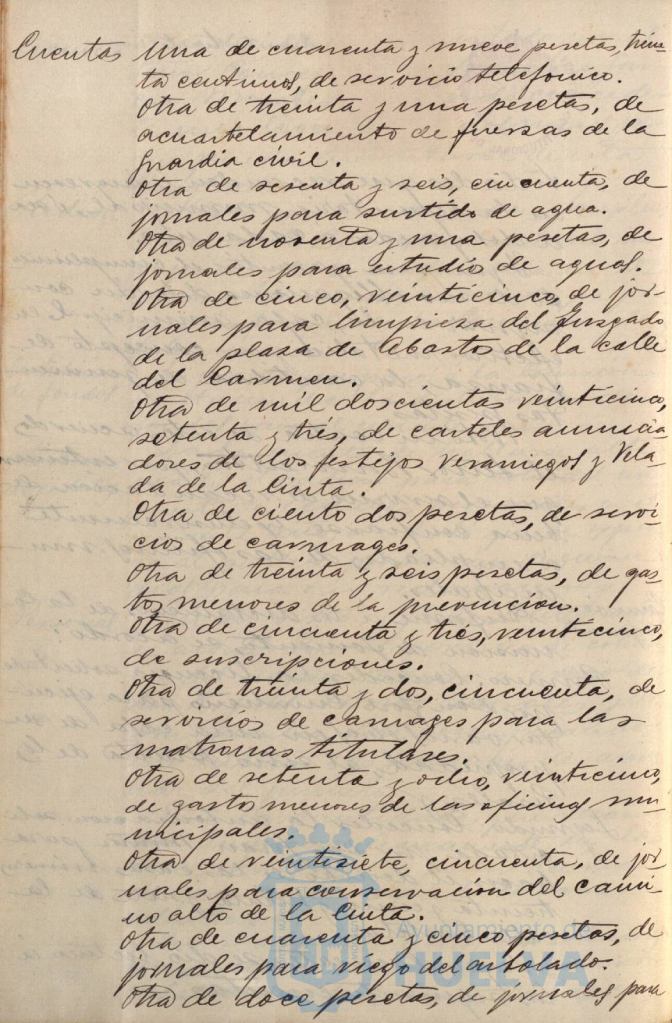 Cuentas Una de cuarenta y nueve pesetas, trein-
ta centimos, de servicio telefonico.
Otra de treinta y una pesetas, de
acuartelamiento de fuerzas de la
guardia civil.
Otra de sesenta y seis, cincuenta, de
jornales para surtido de agua.
Otra de noventa y una pesetas, de
jornales para estudio de aguas.
Otra de cinco, veinticinco, de jor-
nales para limpieza del Juzgado
de la plaza de Abastos de la calle
del Carmen.
Otra de mil doscientas veinticinco,
setenta y trés, de carteles anuncia
dores de los festejos veraniegos y Vela-
da de la Cinta.
Otra de ciento dos pesetas, de servi-
cios de carruages.
Otra de treinta y seis pesetas, de gas-
tos menores de la prevencion.
Otra de cincuenta y trés, veinticinco,
de suscripciones.
Otra de treinta y dos, cincuenta, de
servicios de carruages para las
matronas titulares.
Otra de setenta y ocho, veinticinco,
de gastos menores de las oficinas mu-
nicipales.
Otra de veintisiete, cincuenta, de jor-
nales para conservacion del cami-
no alto de la Cinta.
Otra de cuarenta y cinco pesetas, de
jornales para riego del arbolado.
Otra de doce pesetas, de jornales para
Ayuntamiento de
HUELVA